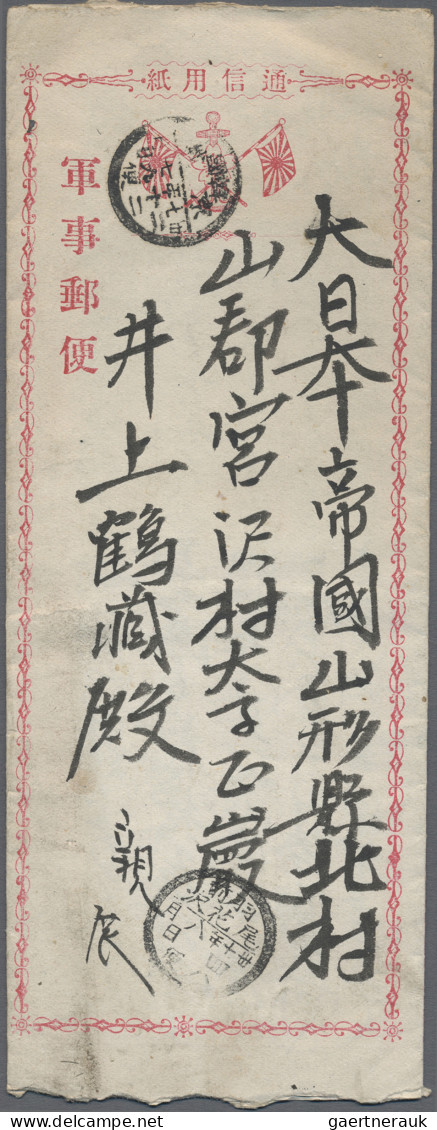 紙用信通
軍事郵便
大日本帝國山形縣北村
山郡宮沢村大字正嚴
井上鶴藏殿
親展
羽前
尾花沢
gaertnerauk